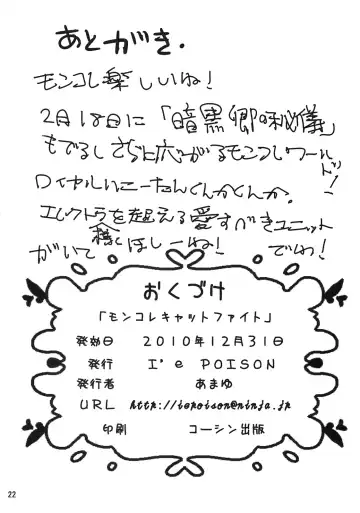 あとがき.
モンコレ楽しいね!
2月18日に「暗黒卿の秘儀」
もでるし さらに広がるモンコレワールドッ!
ロイヤルにこーたんくんかくんか.
エレクトラを超える愛すべきユニット
がいて ほしーね! でわ!
おくづけ
「モンコレキャットファイト」
発効日 2010年12月31日
発行 I'e POISON
発行者 あまゆ
URL http://iepoison@ninja.jp
印刷 コーシン出版
22